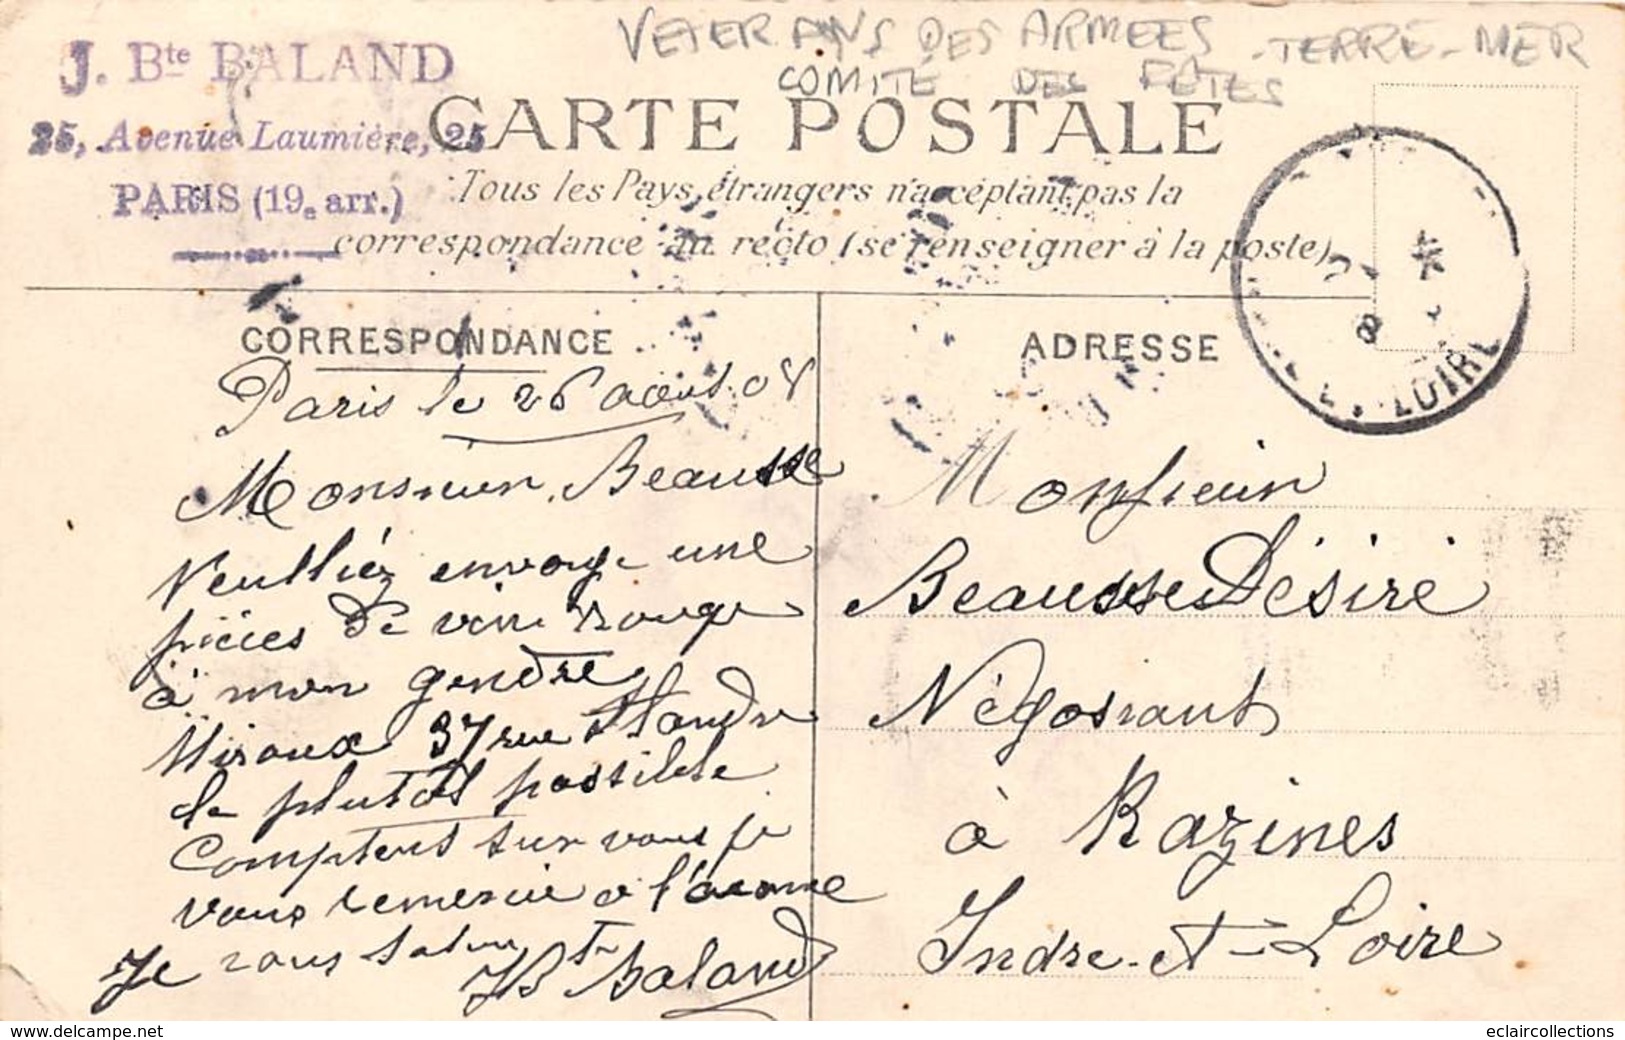 VETERANS DES ARMEES - TERRE - MER
COMITÉ DES FÊTES
J. Bte BALAND
25, Avenue Laumière, 25
PARIS (19e arr.)
CARTE POSTALE
Tous les Pays étrangers n'acceptant pas la
correspondance au recto (se renseigner à la poste)
CORRESPONDANCE
Paris le 26 aout 08
Monsieur Beausse
Veulliéz envoye une
pièces de vin Rouge
à mon gendre
Miroux 37 rue
le plutôt possible
Comptent sur vous je
vous remercie a l'avance
Je vous salue
JBte Baland
ADRESSE
LOIRE
Monsieur
Beausse Désiré
Négosiant
à Razines
Indre-et-Loire
eclaircollections